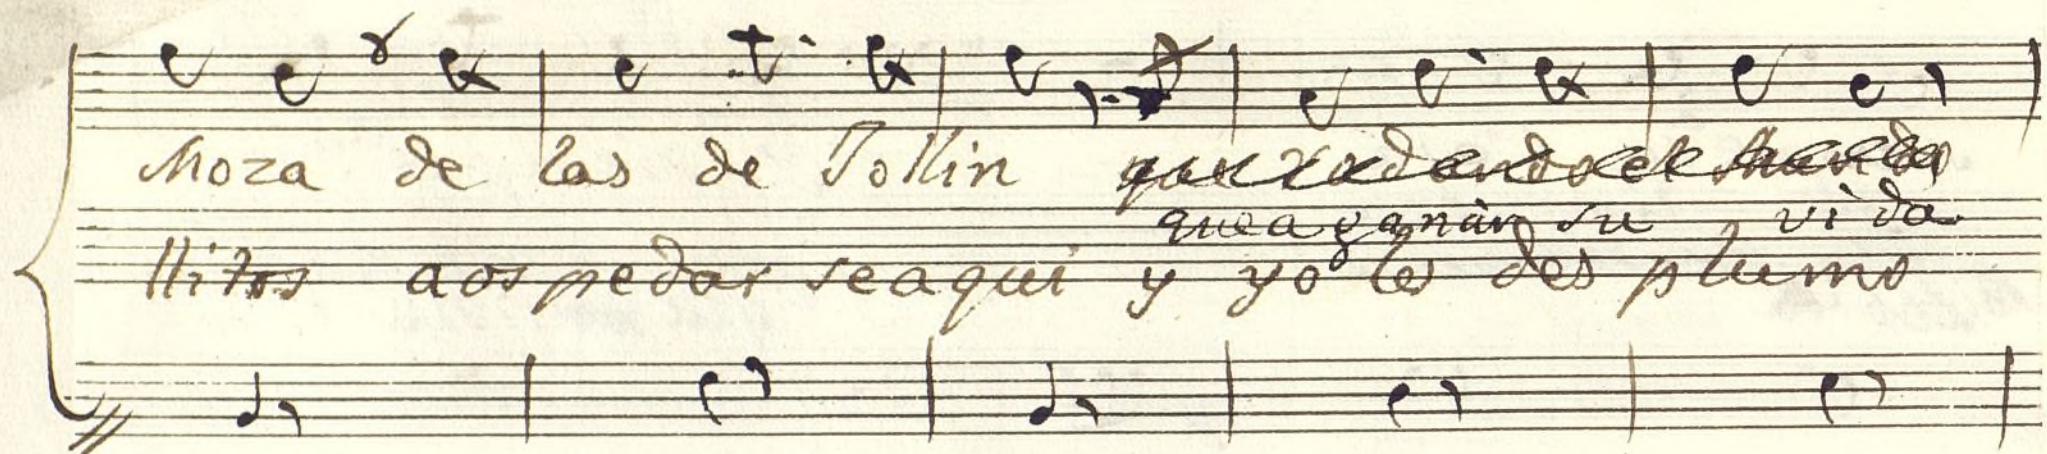 Moza de las de Tollin que rodando el Mundo
que a ganàr su vida
llitos a ospedar se aqui y yo les des plumo